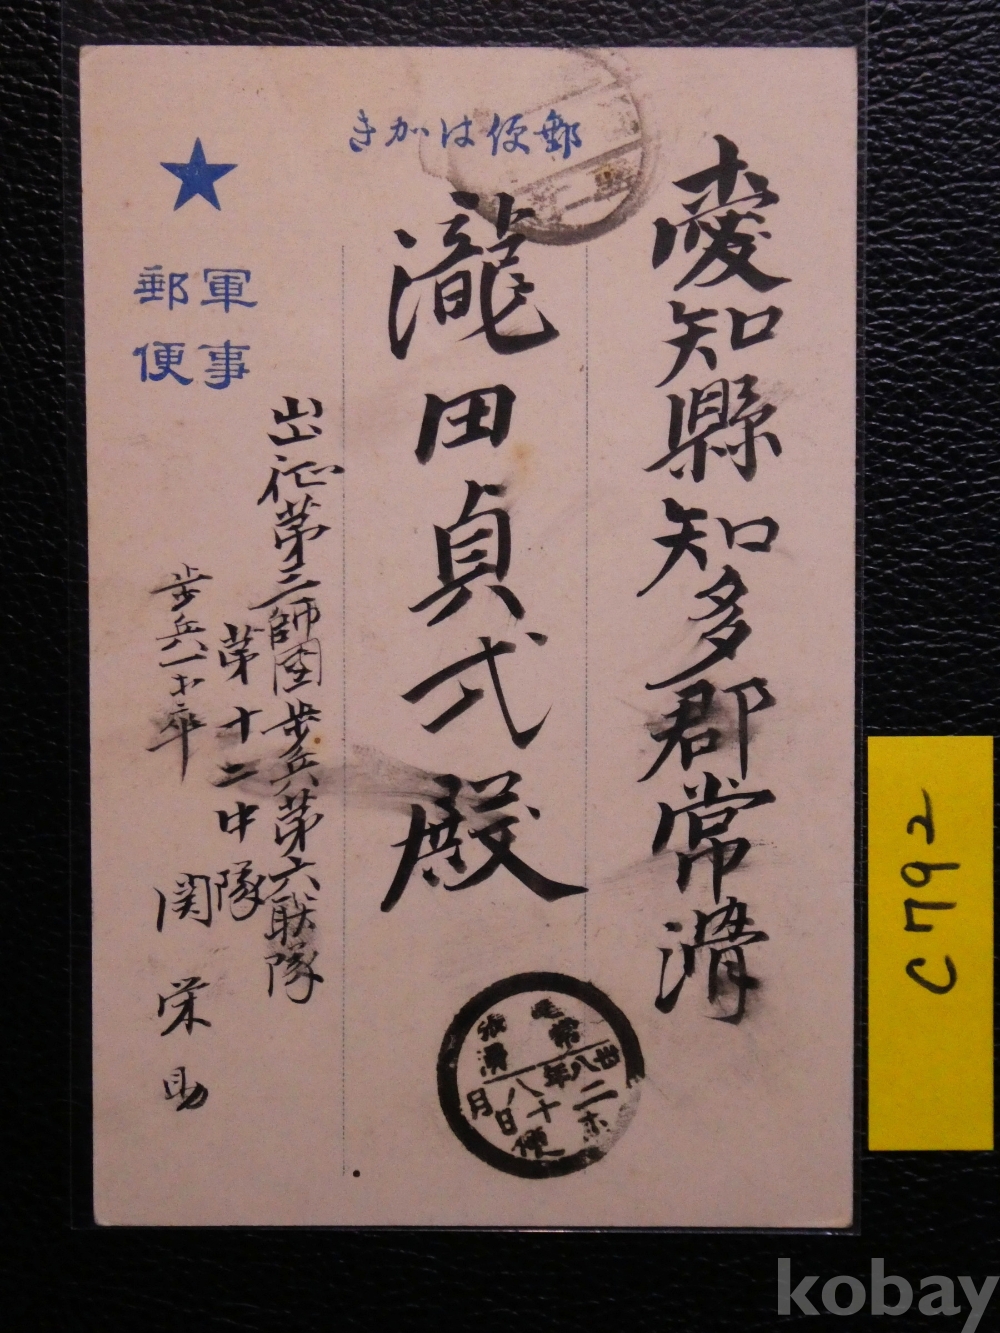 郵便はがき
軍事
郵便
愛知縣知多郡常滑
瀧田貞弌殿
出征第三師團歩兵第六聯隊
第十二中隊
歩兵一等卒
関栄助
尾張
常滑
卅八年
二月
十八日
便
C792
kobay